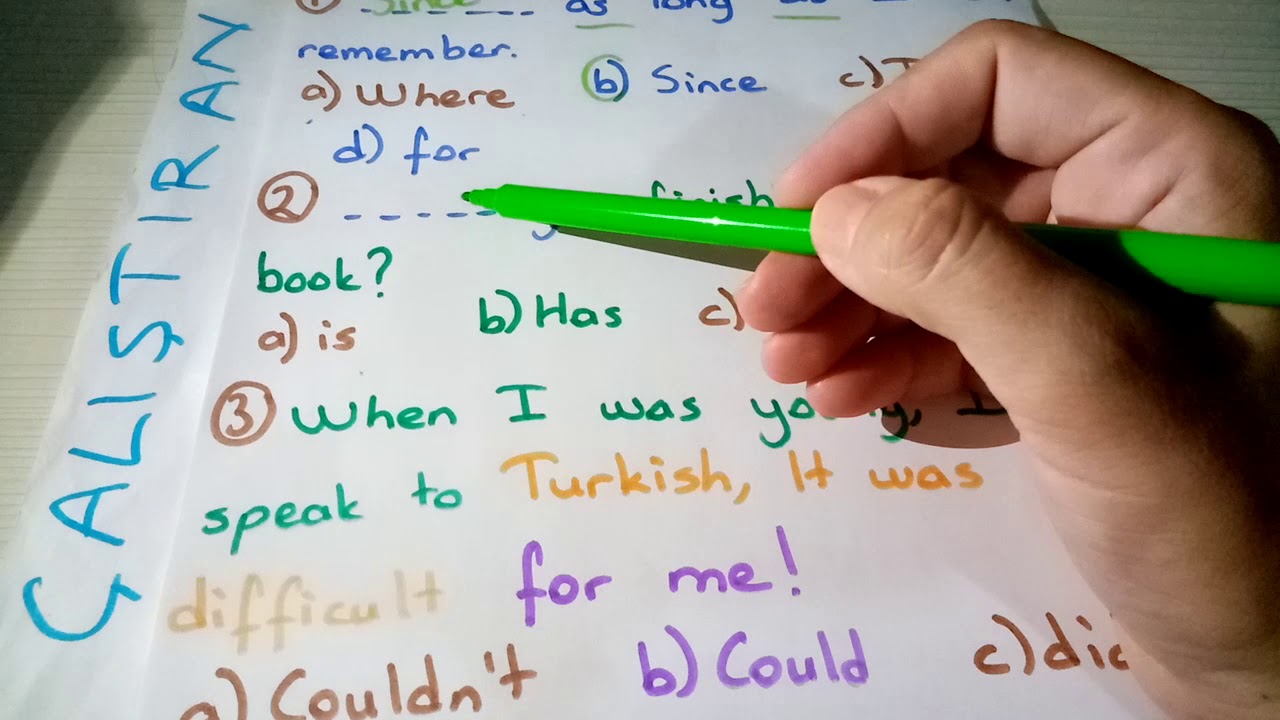 ÇALIŞTIRAN
① Since as long
remember.
a) Where b) Since c)
d) for
② ------ finish
book?
a) is b) Has c)
③ When I was young, I
speak to Turkish, It was
difficult for me!
a) Couldn't b) Could c) did